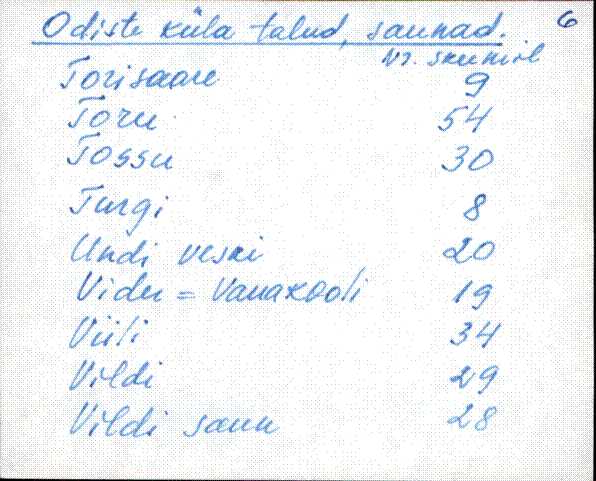 Odiste küla talud, saunad. 6
Nr. skeemil
Torisaare 9
Toru 54
Tossu 30
Turgi 8
Undi veski 20
Vidu = Vanakooli 19
Viili 34
Vildi 29
Vildi saun 28